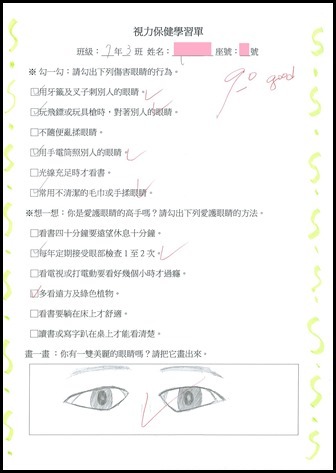 視力保健學習單
班級：2年3班 姓名： 座號： 號
※勾一勾：請勾出下列傷害眼睛的行為。
90 good
□用牙籤及叉子刺別人的眼睛。
□玩飛鏢或玩具槍時，對著別人的眼睛。
□不隨便亂揉眼睛。
□用手電筒照別人的眼睛。
□光線充足時才看書。
□常用不清潔的毛巾或手揉眼睛。
※想一想：你是愛護眼睛的高手嗎？請勾出下列愛護眼睛的方法。
□看書四十分鐘要遠望休息十分鐘。
□每年定期接受眼部檢查1至2次。
□看電視或打電動要看好幾個小時才過癮。
□多看遠方及綠色植物。
□看書要躺在床上才舒適。
□讀書或寫字趴在桌上才能看清楚。
畫一畫：你有一雙美麗的眼睛嗎？請把它畫出來。